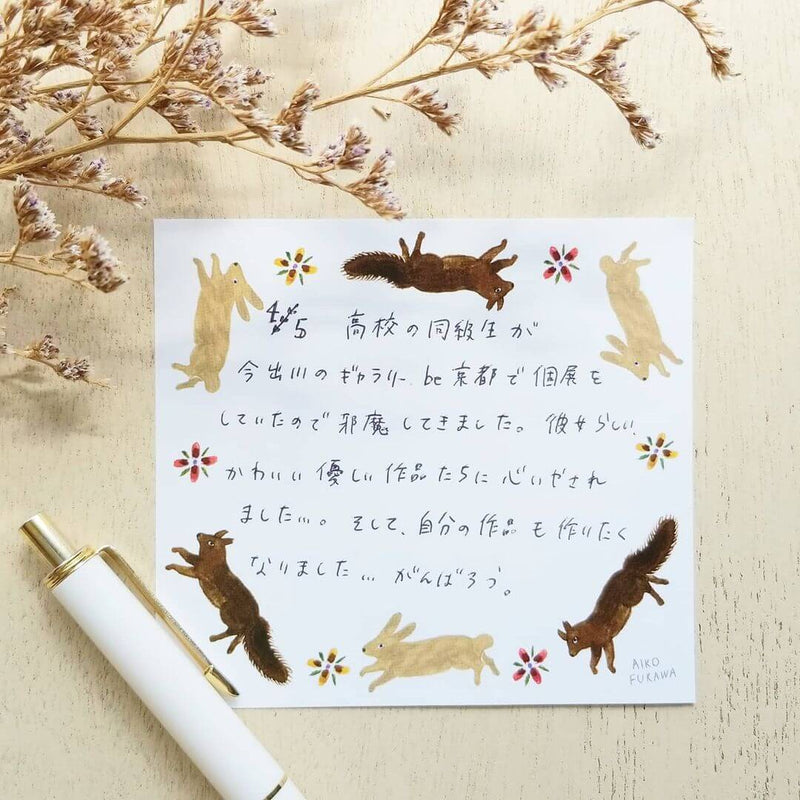 4/5 高校の同級生が
今出川のギャラリー be京都で個展を
していたので邪魔してきました。彼女らしい、
かわいい優しい作品たちに心いやされ
ました…。そして、自分の作品も作りたく
なりました… がんばろう。
AIKO
FUKAWA